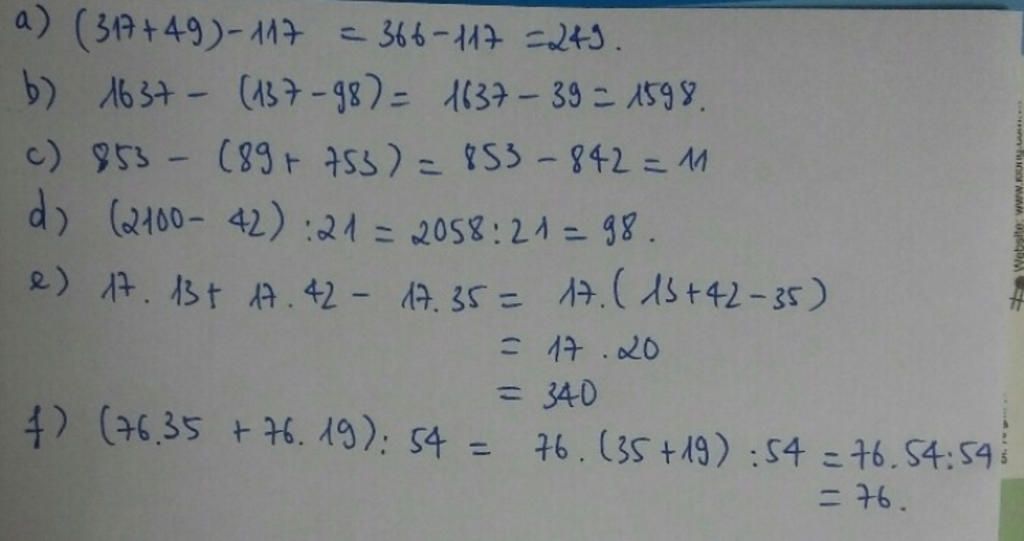 a) (317+49)-117 = 366-117 =249.
b) 1637 - (137-98) = 1637 - 39 = 1598.
c) 853 - (89+ 753) = 853 - 842 = 11
d) (2100- 42) :21 = 2058:21 = 98.
e) 17. 13+ 17.42 - 17.35 = 17.(13+42-35)
= 17 .20
= 340
f) (76.35 +76. 19): 54 = 76. (35+19) :54 = 76.54:54
= 76.
Website: